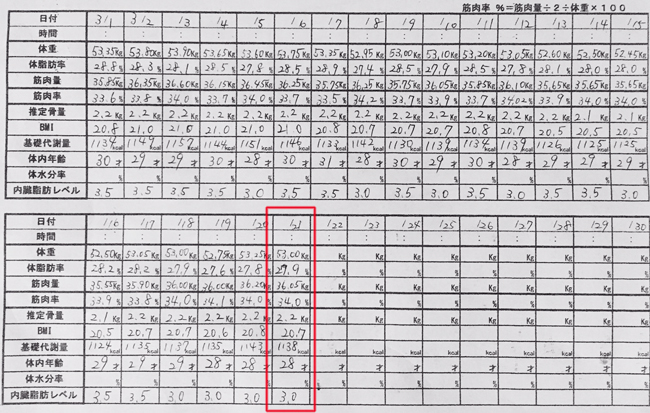 筋肉率 %=筋肉量÷2÷体重×100
日付 3/1 3/2 /3 /4 /5 /6 /7 /8 /9 /10 /11 /12 /13 /14 /15
時間 : : : : : : : : : : : : : : :
体重 53.35Kg 53.80Kg 53.90Kg 53.65Kg 53.60Kg 53.75Kg 53.35Kg 52.95Kg 53.00Kg 53.10Kg 53.20Kg 53.05Kg 52.60Kg 52.50Kg 52.45Kg
体脂肪率 28.8% 28.3% 28.1% 28.5% 27.8% 28.5% 28.9% 27.4% 28.5% 27.9% 28.5% 27.8% 28.1% 28.0% 28.0%
筋肉量 35.85Kg 36.35Kg 36.60Kg 36.15Kg 36.45Kg 36.25Kg 35.75Kg 36.25Kg 35.75Kg 36.05Kg 35.85Kg 36.10Kg 35.65Kg 35.65Kg 35.65Kg
筋肉率 33.6% 33.8% 34.0% 33.7% 34.0% 33.7% 33.5% 34.2% 33.7% 33.9% 33.7% 34.02% 33.9% 34.0% 34.0%
推定骨量 2.2Kg 2.2Kg 2.2Kg 2.2Kg 2.2Kg 2.2Kg 2.2Kg 2.2Kg 2.2Kg 2.2Kg 2.2Kg 2.2Kg 2.2Kg 2.1Kg 2.1Kg
BMI 20.8 21.0 21.0 21.0 21.0 21.0 20.8 20.7 20.7 20.7 20.8 20.7 20.5 20.5 20.5
基礎代謝量 1134kcal 1149kcal 1157kcal 1144kcal 1151kcal 1146kcal 1133kcal 1142kcal 1130kcal 1139kcal 1134kcal 1139kcal 1126kcal 1125kcal 1125kcal
体内年齢 30才 29才 29才 30才 28才 30才 31才 28才 30才 29才 30才 28才 29才 29才 29才
体水分率 % % % % % % % % % % % % % % %
内臓脂肪レベル 3.5 3.5 3.5 3.5 3.0 3.5 3.5 3.0 3.5 3.0 3.5 3.0 3.0 3.0 3.0
日付 /16 /17 /18 /19 /20 /21 /22 /23 /24 /25 /26 /27 /28 /29 /30
時間 : : : : : : : : : : : : : : :
体重 52.50Kg 53.05Kg 53.00Kg 52.75Kg 53.25Kg 53.00Kg Kg Kg Kg Kg Kg Kg Kg Kg Kg
体脂肪率 28.2% 28.2% 27.9% 27.6% 27.8% 27.9% % % % % % % % % %
筋肉量 35.55Kg 35.90Kg 36.00Kg 36.00Kg 36.20Kg 36.05Kg Kg Kg Kg Kg Kg Kg Kg Kg Kg
筋肉率 33.9% 33.8% 34.0% 34.1% 34.0% 34.0% % % % % % % % % %
推定骨量 2.1Kg 2.2Kg 2.2Kg 2.2Kg 2.2Kg 2.2Kg Kg Kg Kg Kg Kg Kg Kg Kg Kg
BMI 20.5 20.7 20.7 20.6 20.8 20.7
基礎代謝量 1124kcal 1135kcal 1137kcal 1135kcal 1143kcal 1138kcal kcal kcal kcal kcal kcal kcal kcal kcal kcal
体内年齢 29才 29才 29才 28才 28才 28才 才 才 才 才 才 才 才 才 才
体水分率 % % % % % % % % % % % % % % %
内臓脂肪レベル 3.5 3.5 3.0 3.0 3.0 3.0